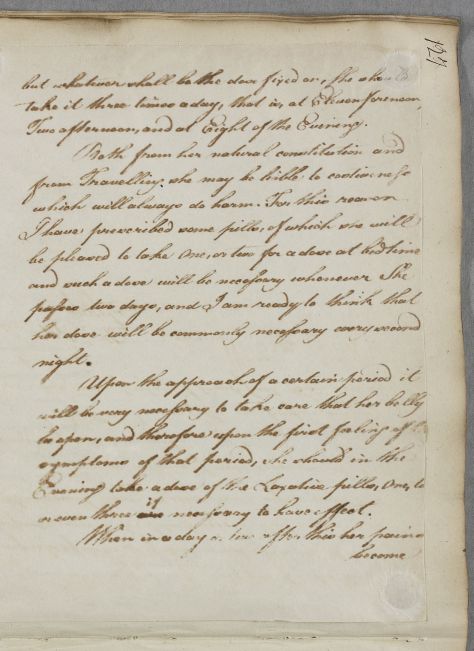 121
but whatever shall be the dose fixed on, she should
take it three times a day, that is, at Eleven forenoon,
Two afternoon, and at Eight of the Evening.
Both from her natural constitution and
from Travelling, she may be liable to costiveness
which will always do harm. For this reason
I have prescribed some pills, of which she will
be pleased to take One, or two for a dose at bedtime
and such a dose will be necessary whenever She
passes two days, and I am ready to think that
her dose will be commonly necessary every second
night.
Upon the approach of a certain period it
will be very necessary to take care that her belly
be open, and therefore upon the first feeling of
symptoms of that period, she should in the
Evening take a dose of the Laxative pills, One, to
or even three if necessary to have effect.
When in a day or two after this her pains
become